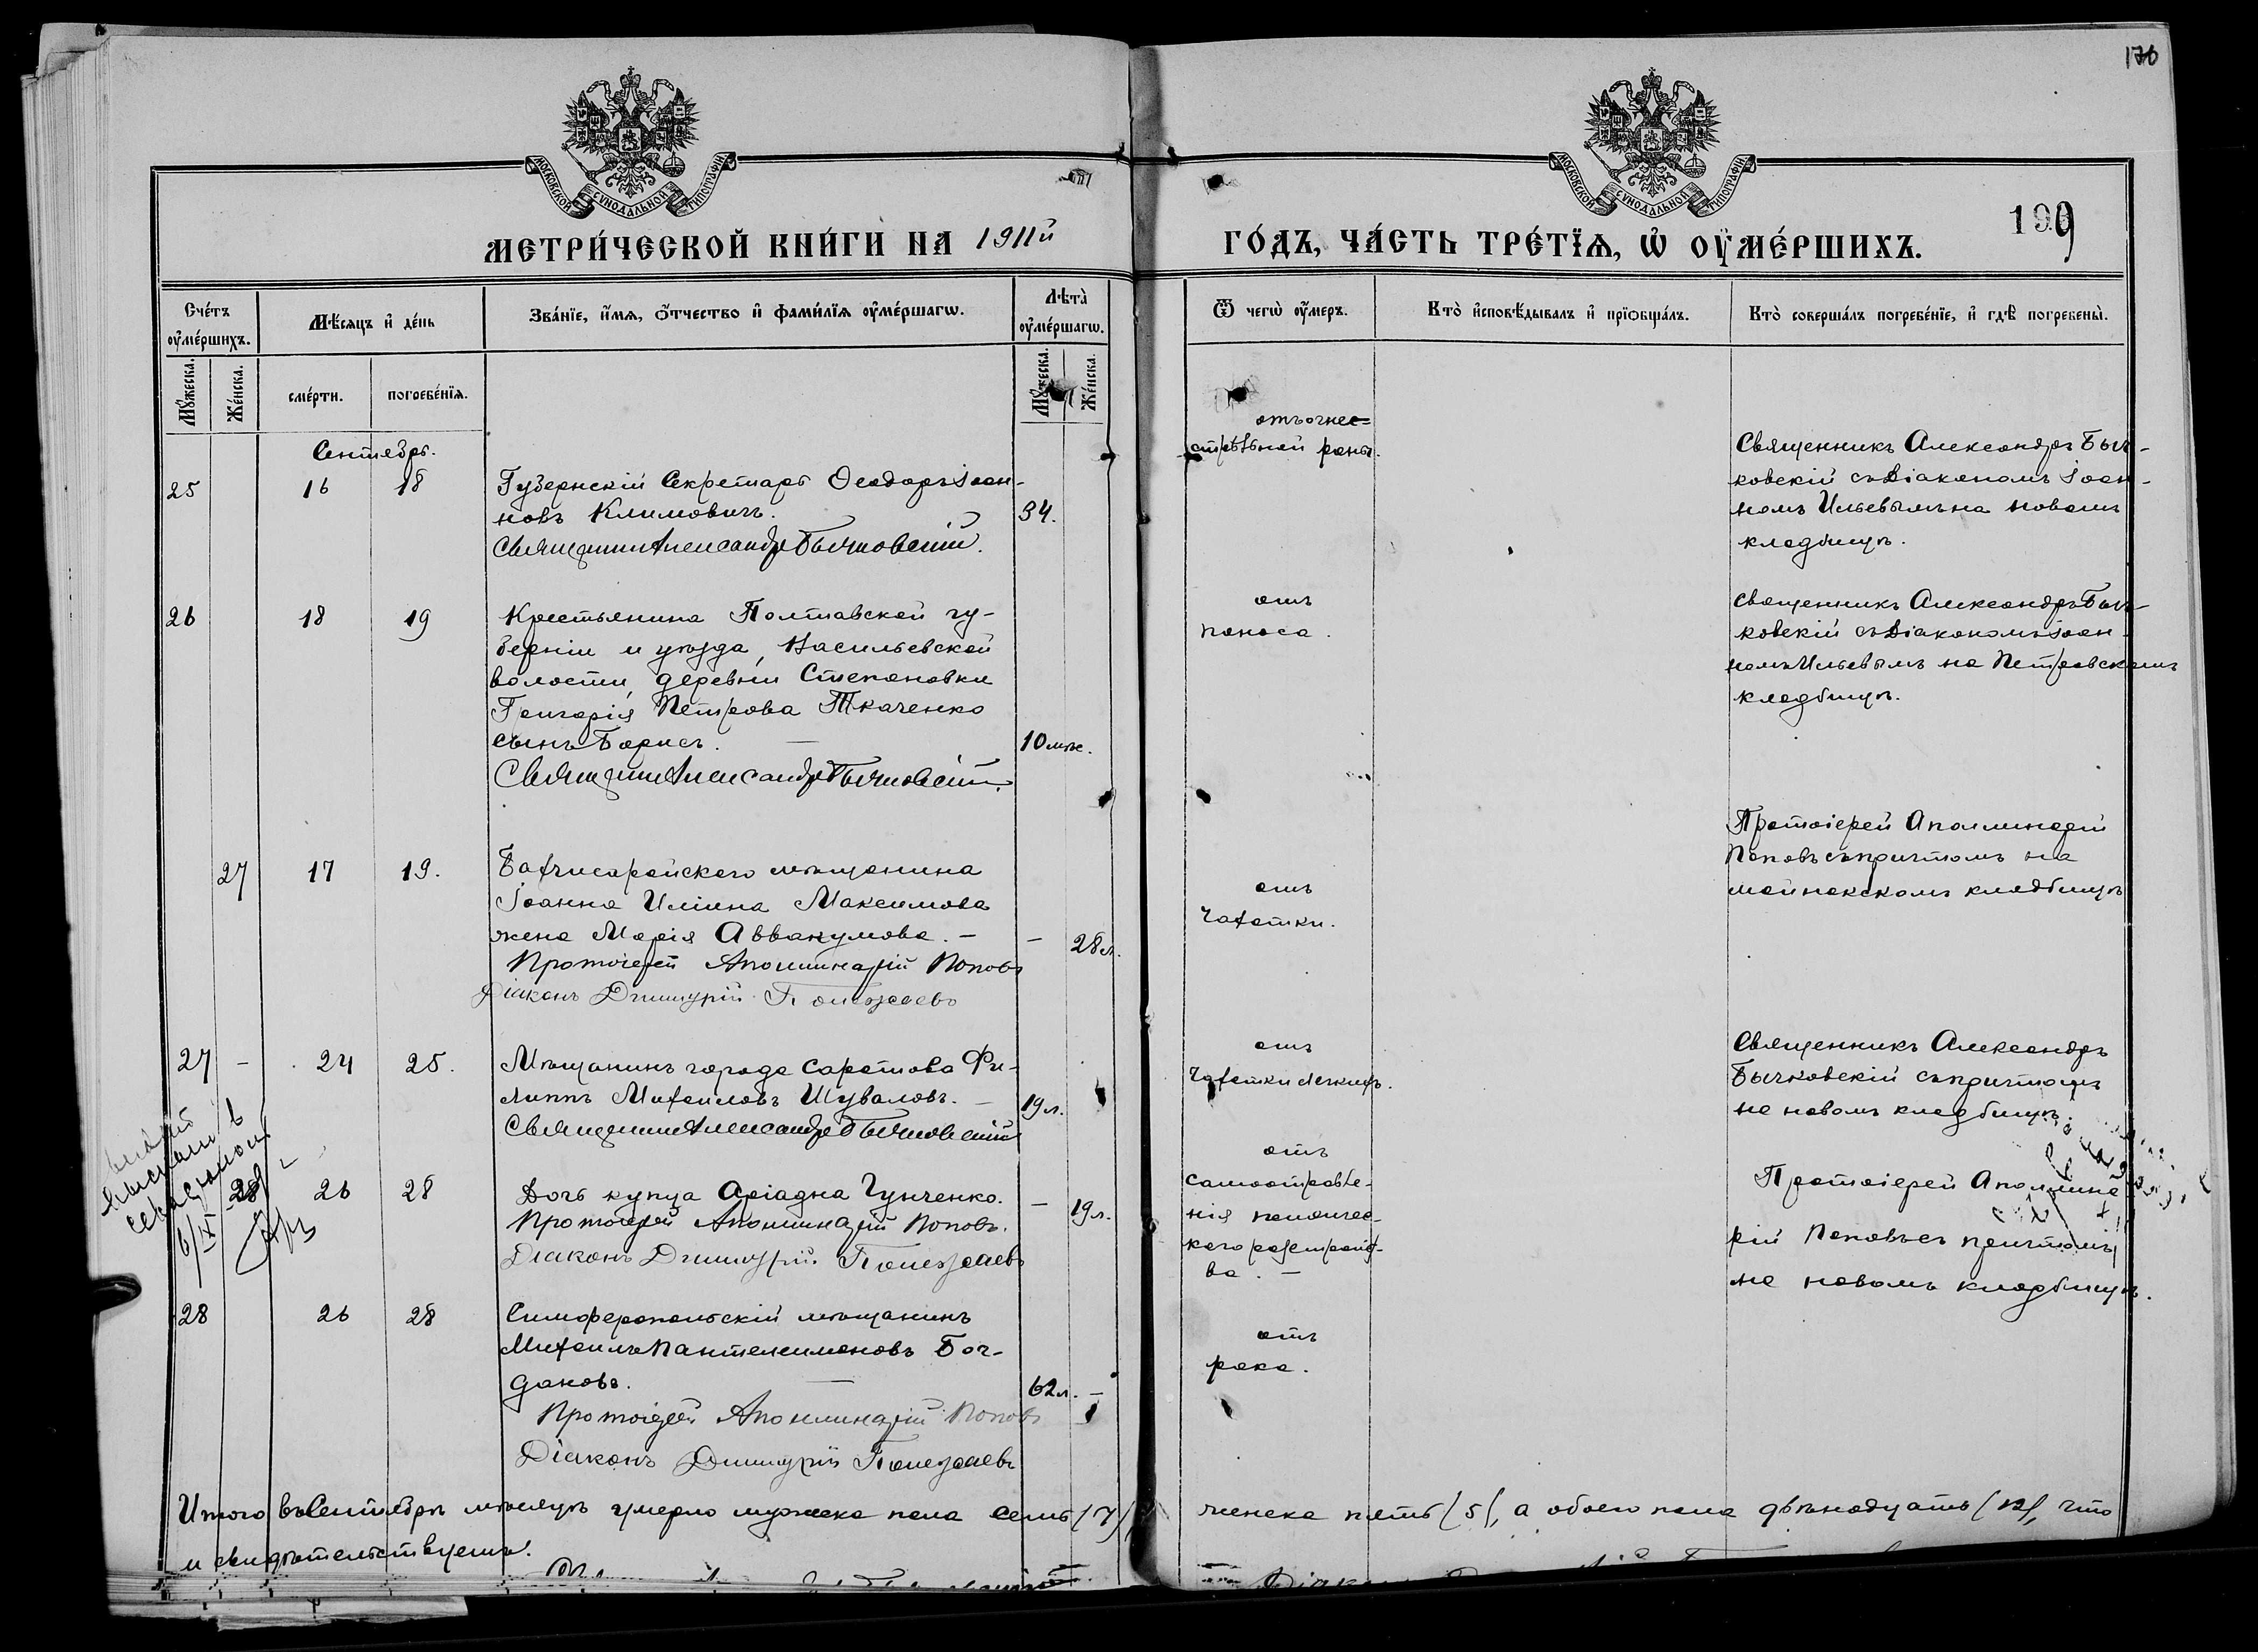 170
МОСКОВСКОЙ СѴНОДАЛЬНОЙ ТИПОГРАФІИ
МОСКОВСКОЙ СѴНОДАЛЬНОЙ ТИПОГРАФІИ
199
МЕТРИ́ЧЕСКОЙ КНИ́ГИ НА 1911й
ГО́ДЪ, ЧА́СТЬ ТРЕ́ТЇѦ, Ѡ҆ ОУ҆МЕ́РШИХЪ.
Сче́тъ оу҆ме́ршихъ.
Мѣ́сяцъ и҆ де́нь
Зва́нїе, и҆́мѧ, ѻ҆́тчество и҆ фами́лїѧ оу҆ме́ршагѡ.
Лѣта̀ оу҆ме́ршагѡ.
Ѿ чегѡ̀ оу҆́меръ.
Кто̀ и҆сповѣ́дывалъ и҆ прїѡбща́лъ.
Кто̀ соверша́лъ погребе́нїе, и҆ гдѣ̀ погребены̀.
Мꙋ́жеска.
Же́нска.
сме́рти.
погребе́нїѧ.
Мꙋ́жеска.
Же́нска.
Сентябрь.
25 16 18
Губернскій Секретарь Ѳеодоръ Іоан-
новъ Климовичъ. 34.
Священникъ Александръ Бычковскій.
отъ огне=
стрѣльной раны.
Священникъ Александръ Быч-
ковскій съ Діакономъ Іоан-
номъ Ильевымъ на новомъ
кладбищѣ.
26 18 19
Крестьянина Полтавской гу-
берніи и уѣзда, Васильевской
волости, деревни Степановки
Григорія Петрова Ткаченко
сынъ Борисъ. 10 мѣс.
Священникъ Александръ Бычковскій.
отъ
поноса.
Священникъ Александръ Быч-
ковскій съ Діакономъ Іоан-
номъ Ильевымъ на Петровскомъ
кладбищѣ.
27 17 19.
Бахчисарайского мѣщанина
Іоанна Иліина Максимова
жена Марія Аввакумова. - - 28 л.
Протоіерей Аполлинарій Поповъ
Діаконъ Димитрій Полежаевъ
отъ
Чахотки.
Протоіерей Аполлинарій
Поповъ съ причтомъ на
мойнакскомъ кладбищѣ
27 - 24 25.
Мѣщанинъ города Саратова Фи-
липпъ Михаиловъ Шуваловъ. - 19 л.
Священникъ Александръ Бычковскій
отъ
Чахотки легкихъ.
Священникъ Александръ
Бычковскій съ причтомъ
на новомъ кладбищѣ.
6/IX
28 26 28
Дочь купца Аріадна Гунченко. - 19 л.
Протоіерей Аполлинарій Поповъ.
Діаконъ Димитрій Полежаевъ
отъ
самоотравле-
нія психичес-
кого разстройс-
ва. -
Протоіерей Аполлина
рій Поповъ съ причтомъ
на новомъ кладбищѣ.
28 26 28
Симферопольскій мѣщанинъ
Михаилъ Пантелеимоновъ Бог-
дановъ. 62 л. -
Протоіерей Аполлинарій Поповъ
Діаконъ Димитрій Полежаевъ
отъ
рака.
Итого въ Сентябрѣ мѣсяцѣ умерло мужеска пола семь (7), женска пять (5), а обоего пола двѣнадцать (12), что
и свидѣтельствуемъ.